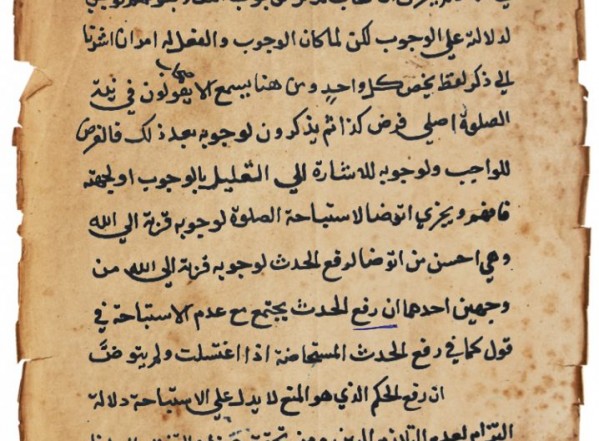 لدلالته علي الوجوب لكن لما كان الوجوب والفعل له امران اشرنا
الي ذكر لفظ يخص كل واحد ومن هنا يسمع الاصحاب يقولون في نية
الصلوة اصلي فرض كذا ثم يذكرون لوجوبه بعد ذلك فالفرض
للواجب ولوجوبه للاشارة الي التعليل بالوجوب او لجهته
فافهم ويجزي اتوضا لاستباحة الصلوة لوجوبه قربة الي الله
وهي احسن من اتوضا لرفع الحدث لوجوبه قربة الي الله من
وجهين احدهما ان رفع الحدث يجتمع مع عدم الاستباحة في
قول كما في رفع الحدث المستحاضة اذا اغتسلت ولم يتوضّ
ان رفع الحكم الذي هو المنع لا يدل علي الاستباحة دلالة